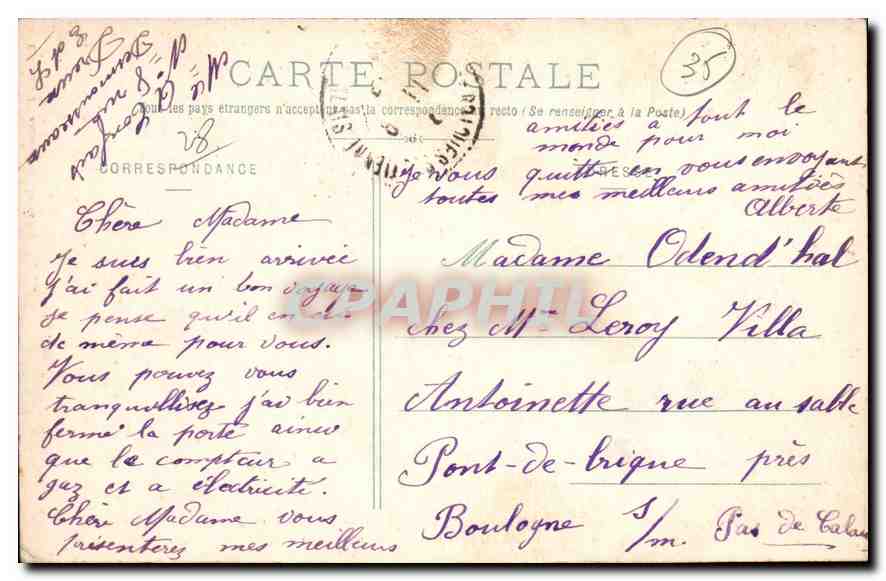 CARTE POSTALE
Tous les pays étrangers n'acceptent pas la correspondance au recto (Se renseigner à la Poste)
CORRESPONDANCE
28
35
Chère Madame
Je suis bien arrivée
j'ai fait un bon voyage
je pense qu'il en
de même pour vous.
Vous pouvez vous
tranquillisez j'ai bien
fermé la porte ainsi
que le compteur a
gaz et a électricité.
Chère Madame vous
présenterez mes meilleurs
amitiés à tout le
monde pour moi
Je vous quitte en vous envoyant
toutes mes meilleurs amitiés
Alberte
Madame Odend'hal
chez Mme Leroy Villa
Antoinette rue au sable
Pont-de-brique près
Boulogne s/m. Pas de Calais
CPAPHIL